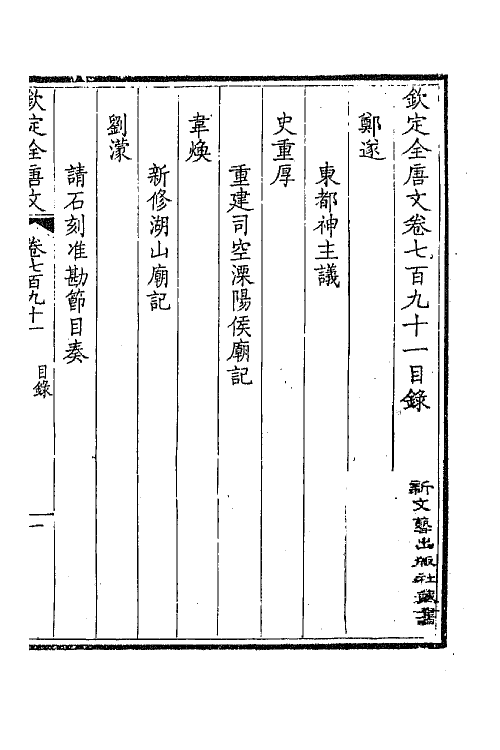 欽定全唐文卷七百九十一目錄
新文藝出版社藏書
鄭遂
東都神主議
史重厚
重建司空溧陽侯廟記
韋煥
新修湖山廟記
劉濛
請石刻准勘節目奏
欽定全唐文
卷七百九十一
目錄
一